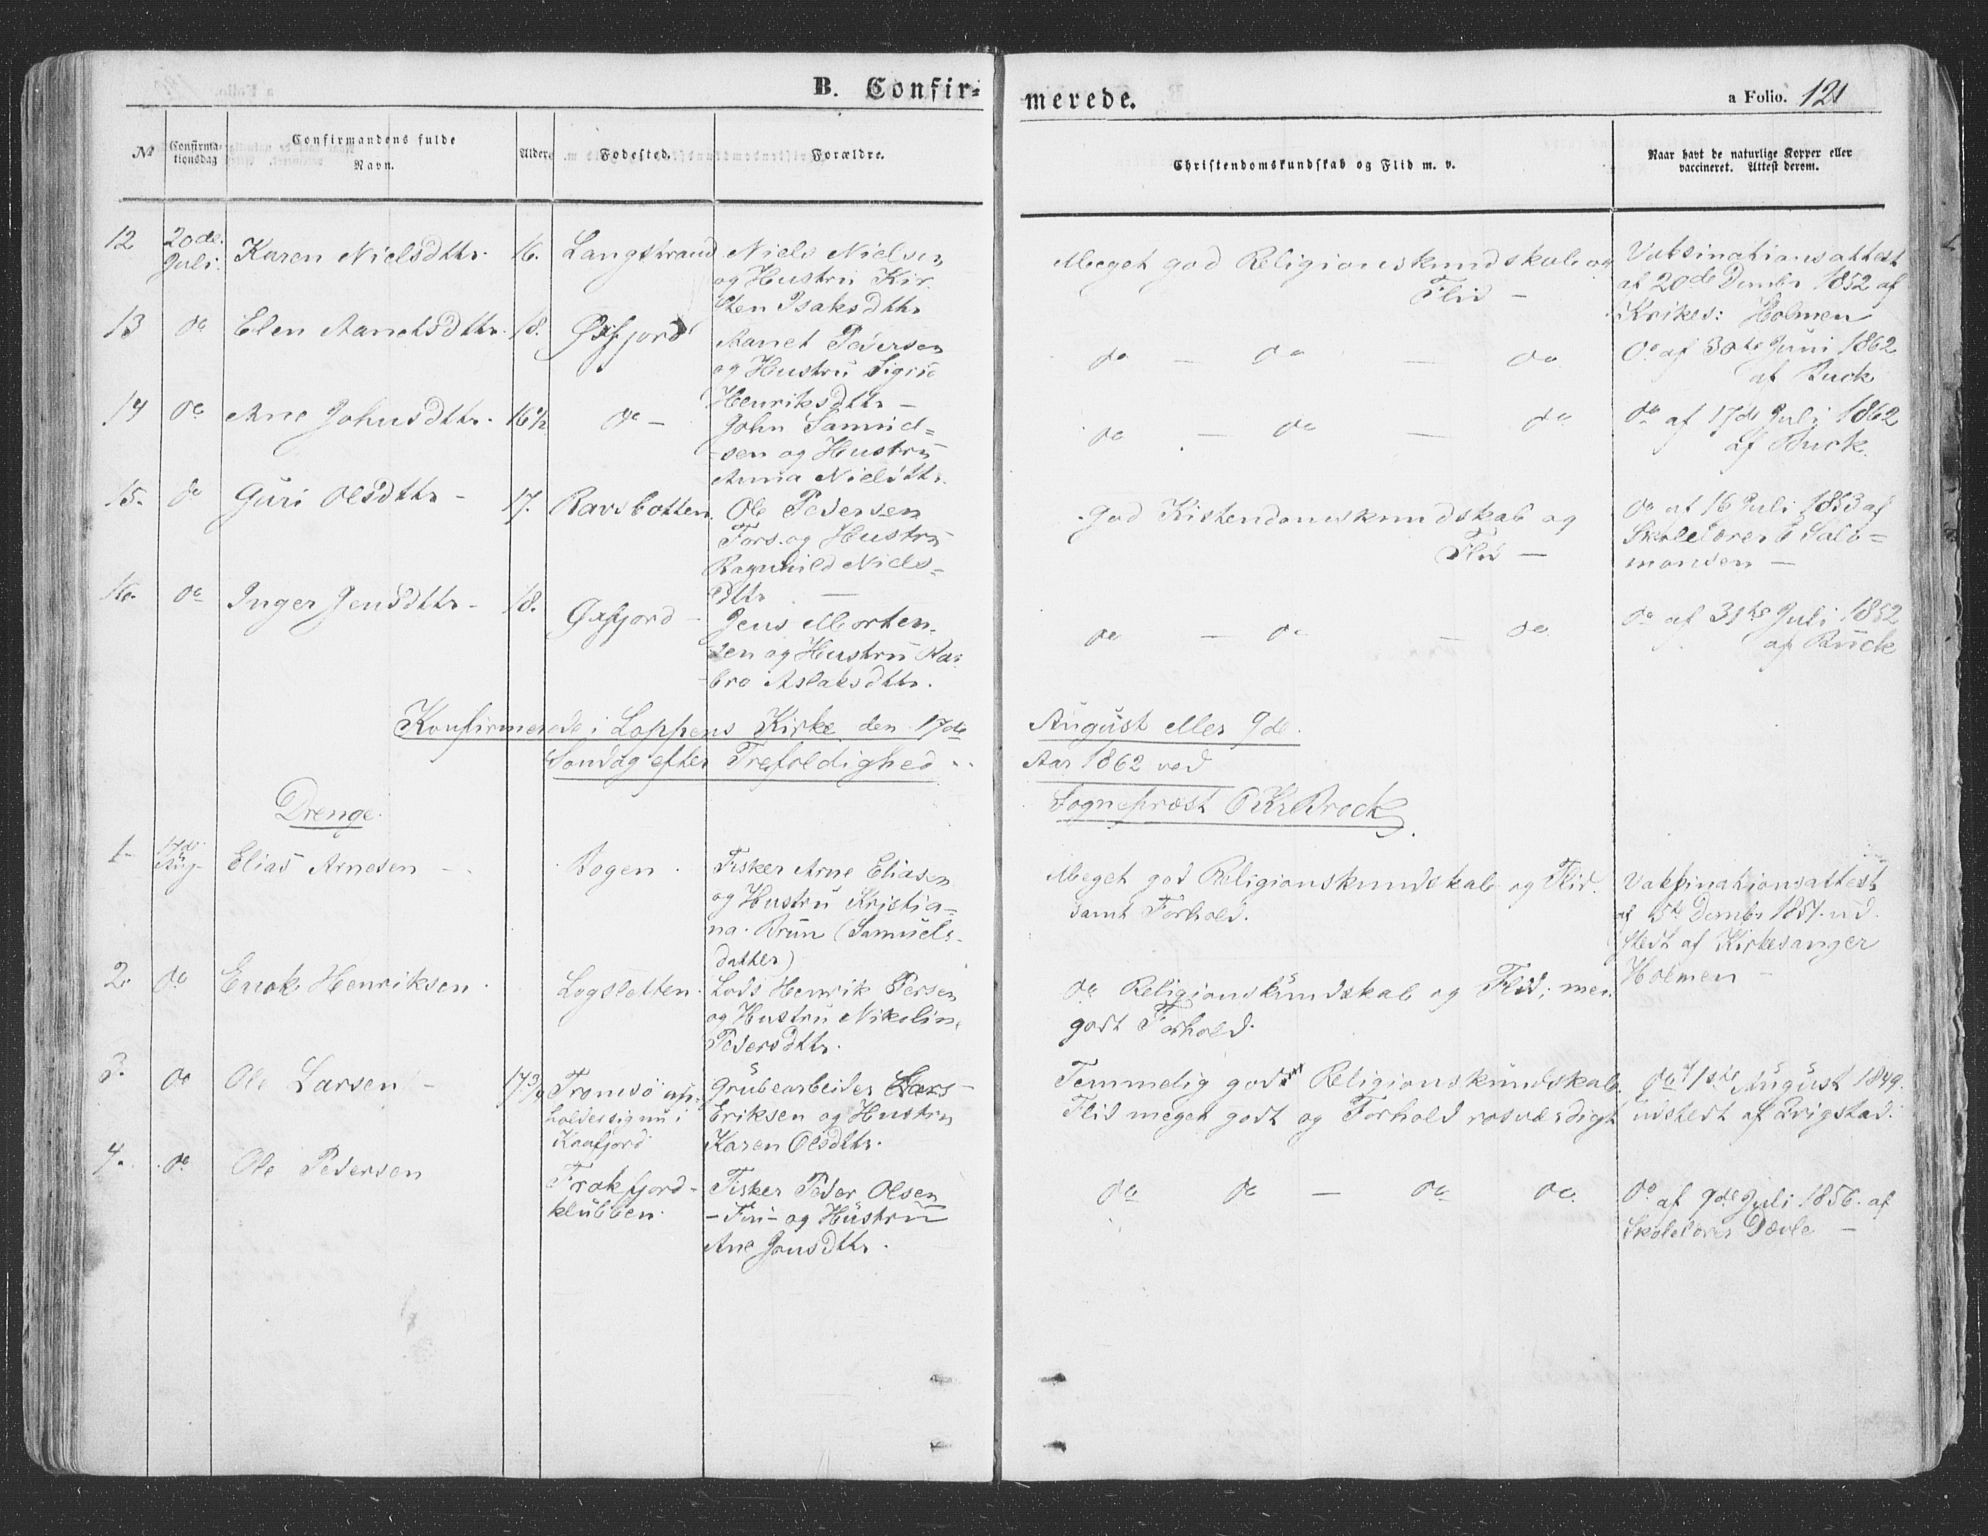 B. Confir=
merede.
a Folio. 121
No
Confirma-
tionsdag
Confirmandens fulde
Navn.
Alder.
Fødested.
Forældre.
Christendomskundskab og Flid m. v.
Naar havt de naturlige Kopper eller
vaccineret. Attest derom.
12 20de Juli. Karen Nielsdttr. 16. Langstrand Niels Nielsen
og Hustru Kir
sten Isaksdttr
Meget god Religionskundskab og
Flid –
Vaksinationsattest
af 20de Dembr 1852 af
Kirkes: Holmen
13 do Elen Aanetsdttr. 18. Øxfjord Aanet Pedersen
og Hustru Sigrid
Henriksdttr –
do – do – do
do af 30te Juni 1862
af Buck
14 do Ane Johnsdttr. 16½ do – John Samuel=
sen og Hustru
Anna Nielsdttr.
do – do – do
do af 17de Juli 1862
af Buck.
15. do Guri Olsdttr – 17. Ravsbotten. Ole Pedersen
Fors. og Hustru
Ragnhild Niels=
dttr. –
God Kistendomskundskab og
Flid –
do af 16 Juli 1853 af
Skolelærer Salo=
monsen –
16. do Inger Jensdttr – 18. Øxfjord – Jens Morten.
sen og Hustru Ba.
bra Aslaksdttr.
do – do – do
do af 31te Juli 1852
af Buck
Konfirmerede i Loppens Kirke den 17de
August eller 9de.
Søndag efter Trefoldighed
Aar 1862 ved
Sognepræst Brock
Drenge.
1. 17de Aug– Elias Arnesen – Bogen. Fisker Arne Eliasen
og Hustru Kristia=
na. Brun (Samuels.
datter)
Meget god Religionskundskab og Flid.
samt Forhold.
Vaksinationsattest
af 15de Dembr 1857. ud.
stedt af Kirkesanger
Holmen –
2. do Enok Henriksen. Logsletten. Lods Henrik Persen
og Hustru Nikoline
Pedersdttr.
do Religionskundskab og Flid; men
godt Forhold.
3. do Ole Larsen – 17 Tromsö
i
Kaafjord
Grubearbeider Lars
Eriksen og Hustru
Karen Olsdttr.
Temmelig god Religionskundskab.
Flid meget godt og Forhold rosværdigt
do 1ste August 1849.
udstedt af Qvigstad.
4. do Ole Pedersen Frakfjord–
klubben. Fisker Peder Olsen
– Fin – og Hustru
Ane Jonsdttr.
do do – do do
do af 9de Juli 1856. af
Skolelærer –